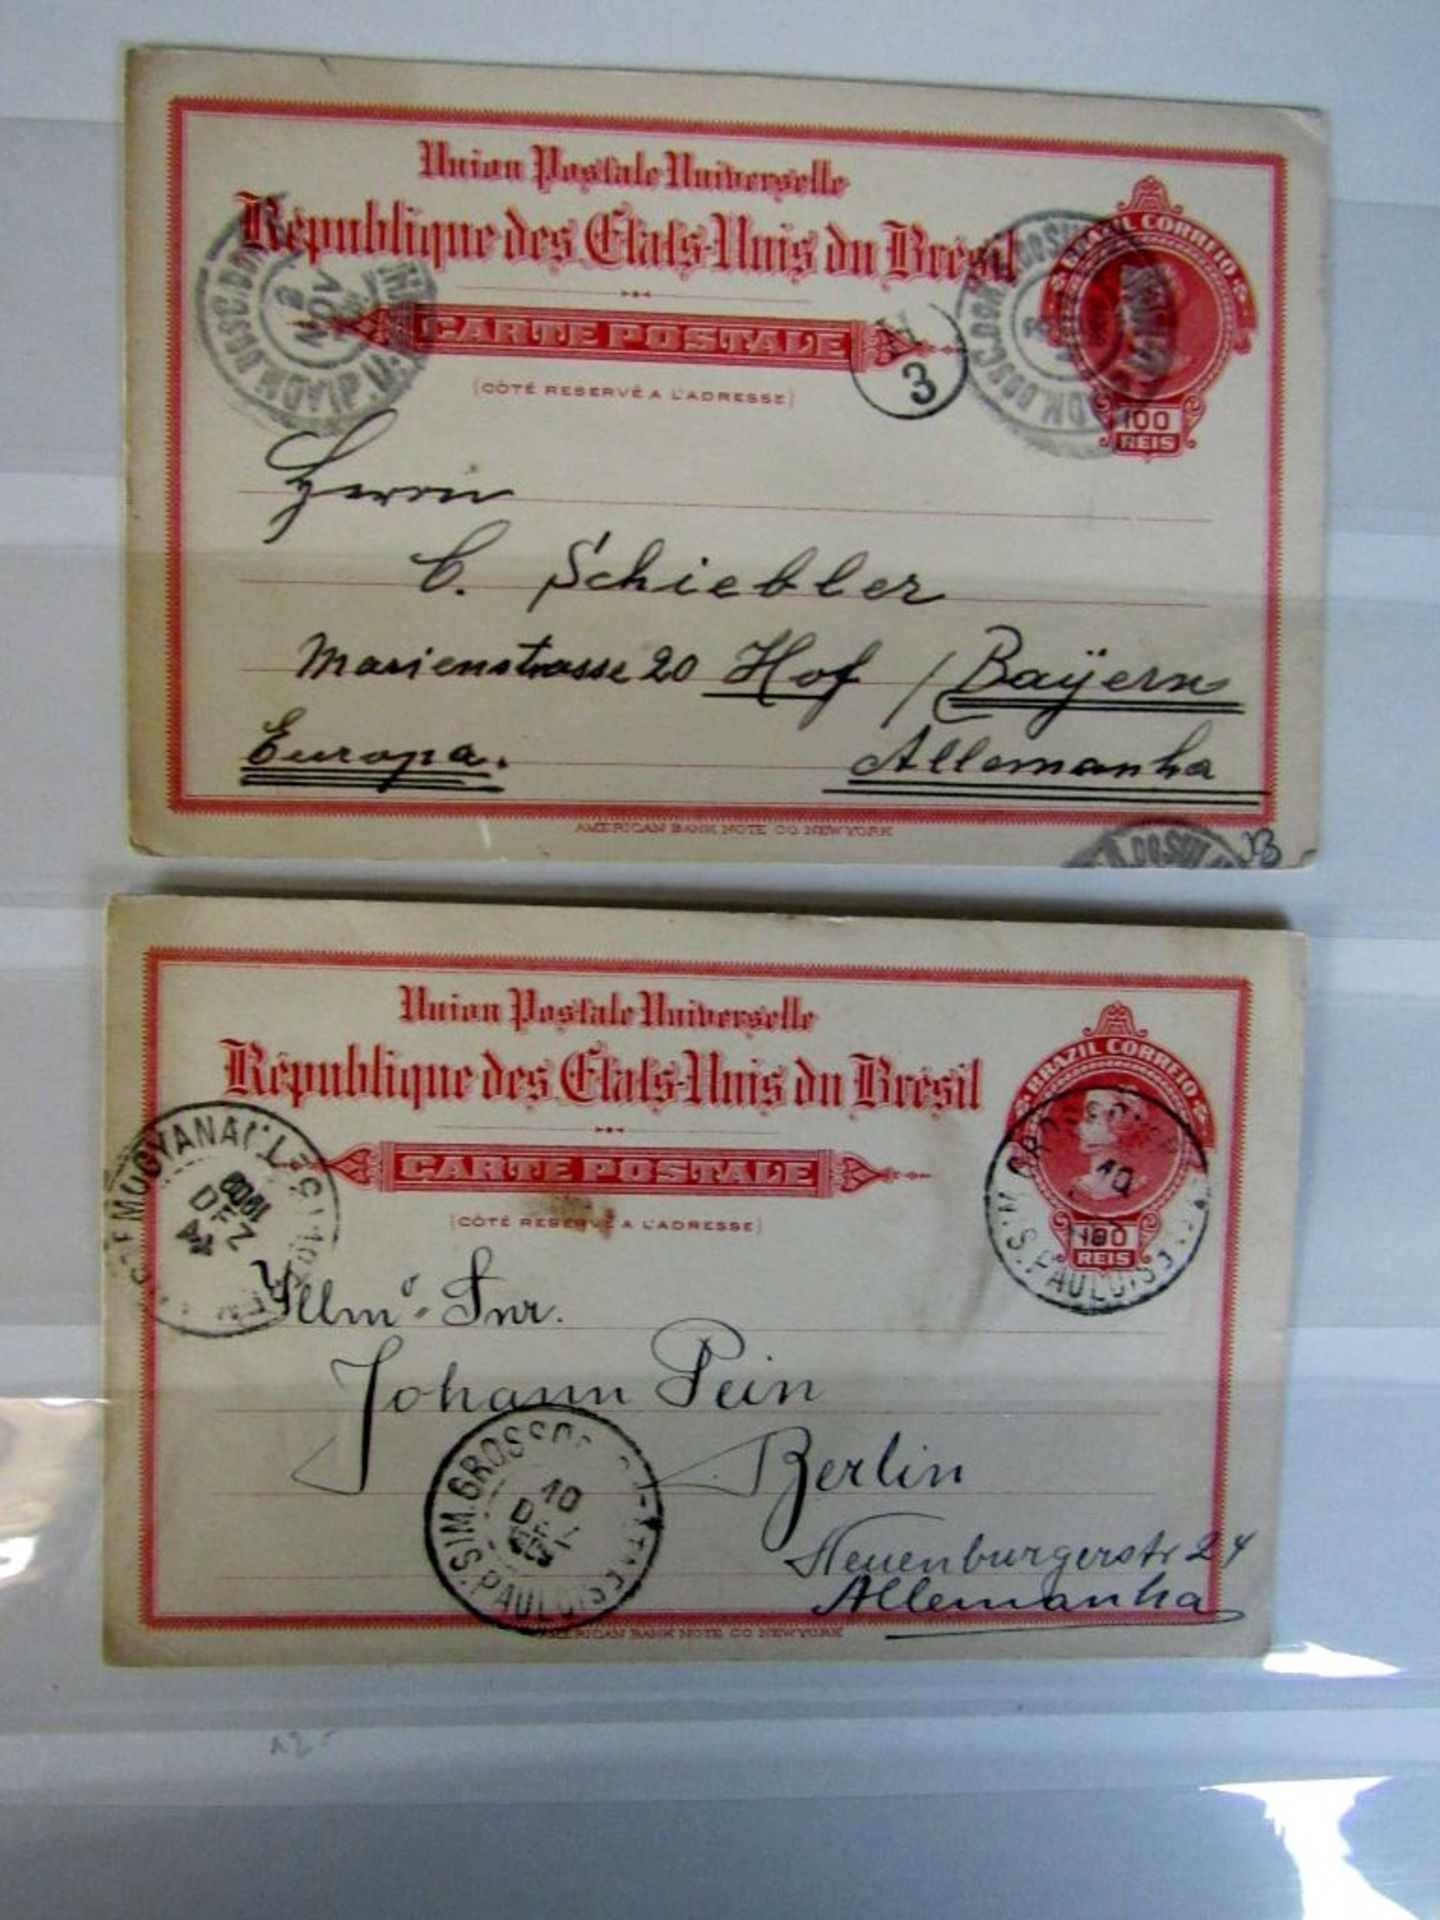 Union Postale Universelle
République des États-Unis du Brésil
BRAZIL CORREIO
CARTE POSTALE
3
(CÔTÉ RESERVÉ A L'ADRESSE)
100
REIS
8
NOV
Herrn
C. Schiebler
Marienstrasse 20 Hof / Bayern
Europa. Allemanha
AMERICAN BANK NOTE CO NEW YORK
DO SUL
Union Postale Universelle
République des États-Unis du Brésil
BRAZIL CORREIO
CARTE POSTALE
(CÔTÉ RESERVÉ A L'ADRESSE)
100
REIS
MOGYANA
1909
DEZ
10
S. PAULO
Illmo. Snr.
Johann Pein
Berlin
GROSSO
10
DEZ
S. PAULO
Neuenburgerstr 24
Allemanha
AMERICAN BANK NOTE CO NEW YORK
12-